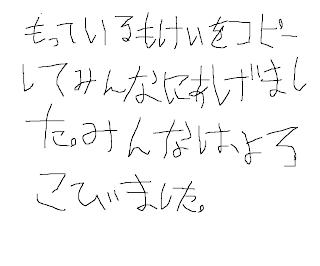 もっているもけいをコピー
してみんなにあげまし
た。みんなは、よろ
こびました。